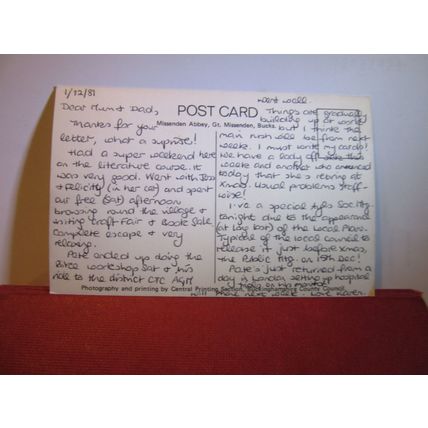 1/12/81
Dear Mum & Dad,
POST CARD
Missenden Abbey, Gt. Missenden, Bucks.
Thanks for your
letter, what a suprise!
Had a super weekend here
on the literature course. It
was very good. Went with Jess
& Felicity (in her car) and spent
our free (Sat) afternoon
browsing round the village &
visiting Craft Fair & Book Sale.
Complete escape & very
relaxing.
Pete ended up doing the
Bike workshop Sat & his
ride to the district CTC AGM
went well.
Things are gradually
building up at work
but I think the
main rush will be from next
week. I must write my cards!
We have a lady off sick this
week and another who announced
today that she's retiring at
Xmas. Usual problems staff-
wise!
I've a special Mtg
tonight due to the appearance
(at long last) of the Local Plan.
Typical of the local council to
release it just before Xmas.
The Public Mtg. on 15th Dec!
Pete's just returned from a
day in London setting up hospital
Photography and printing by Central Printing Section, Buckinghamshire County Council.
will phone next week Love Karen.